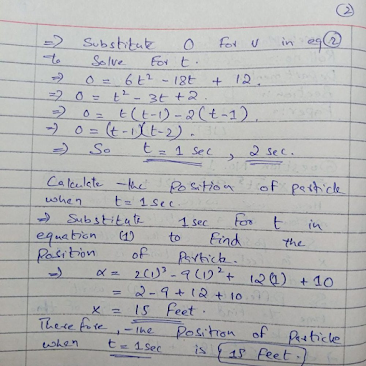 2
⇒ Substitute 0 for v in eq 2
to Solve for t.
⇒ 0 = 6t² - 18t + 12.
⇒ 0 = t² - 3t + 2.
⇒ 0 = t(t-1) - 2(t-1).
⇒ 0 = (t-1)(t-2).
⇒ So t = 1 sec , 2 sec.
Calculate the Position of particle
when t = 1 sec.
⇒ Substitute 1 sec for t in
equation (1) to find the
Position of Particle.
⇒ x = 2(1)³ - 9(1)² + 12(1) + 10
= 2 - 9 + 12 + 10.
x = 15 feet.
Therefore, the Position of Particle
when t = 1 sec is 15 feet.